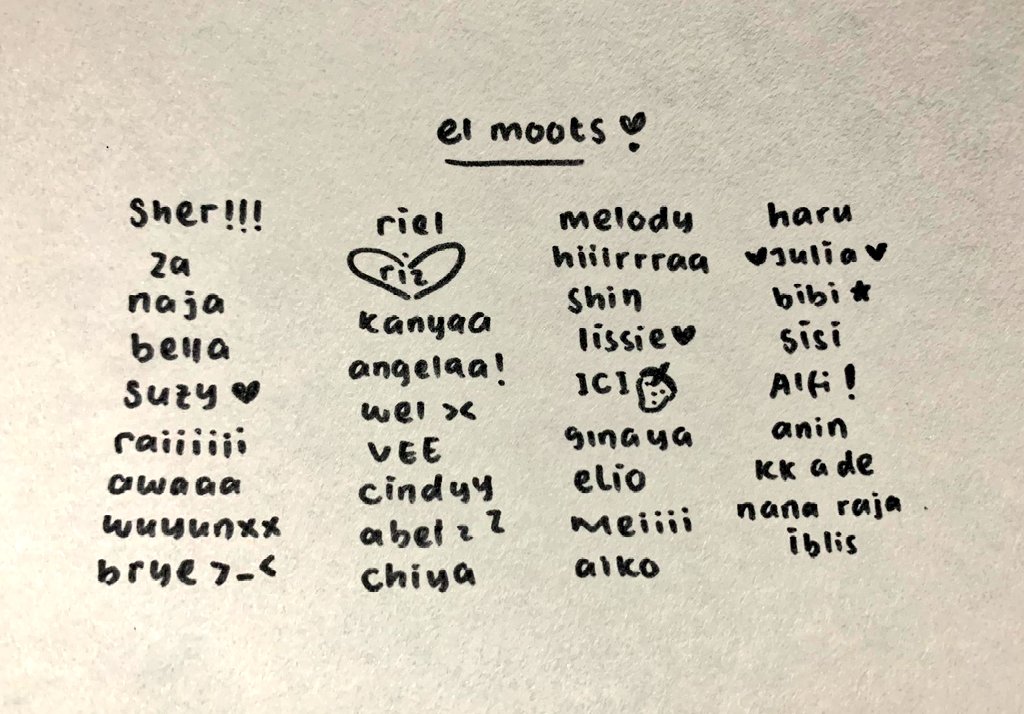 el moots
sher!!!
za
naja
bella
suzy ♥
raiiiiii
awaaa
wuyunxx
brye >_<
riel
riz
kanyaa
angelaa!
wel ><
VEE
cindyy
abel z z
chiya
melody
hiilrrraa
shin
lissie♥
ICI
ginaya
elio
meiiii
aiko
haru
♥Julia♥
bibi★
sisi
Alfi!
anin
kk ade
nana raja
iblis